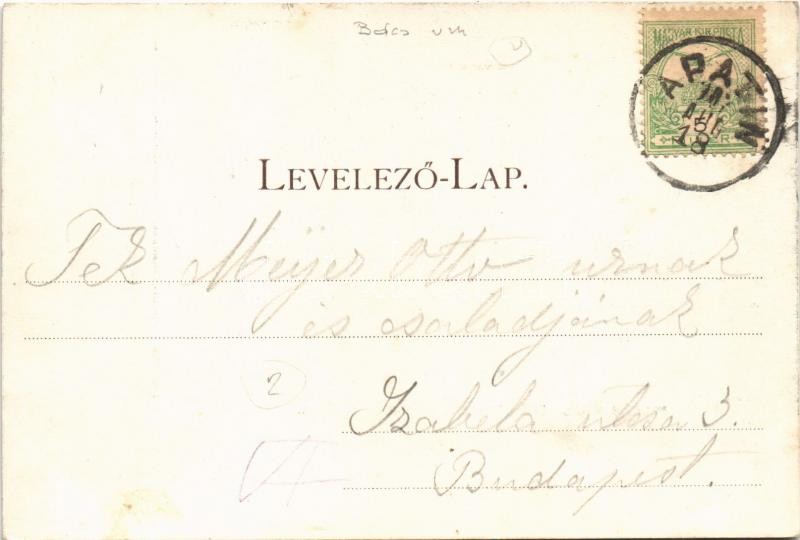 MAGYAR KIR. POSTA
APATIN
LEVELEZŐ-LAP.
Tek Meÿer Otto urnak
és családjának
2
Izabela utcsa 3.
Budapest.